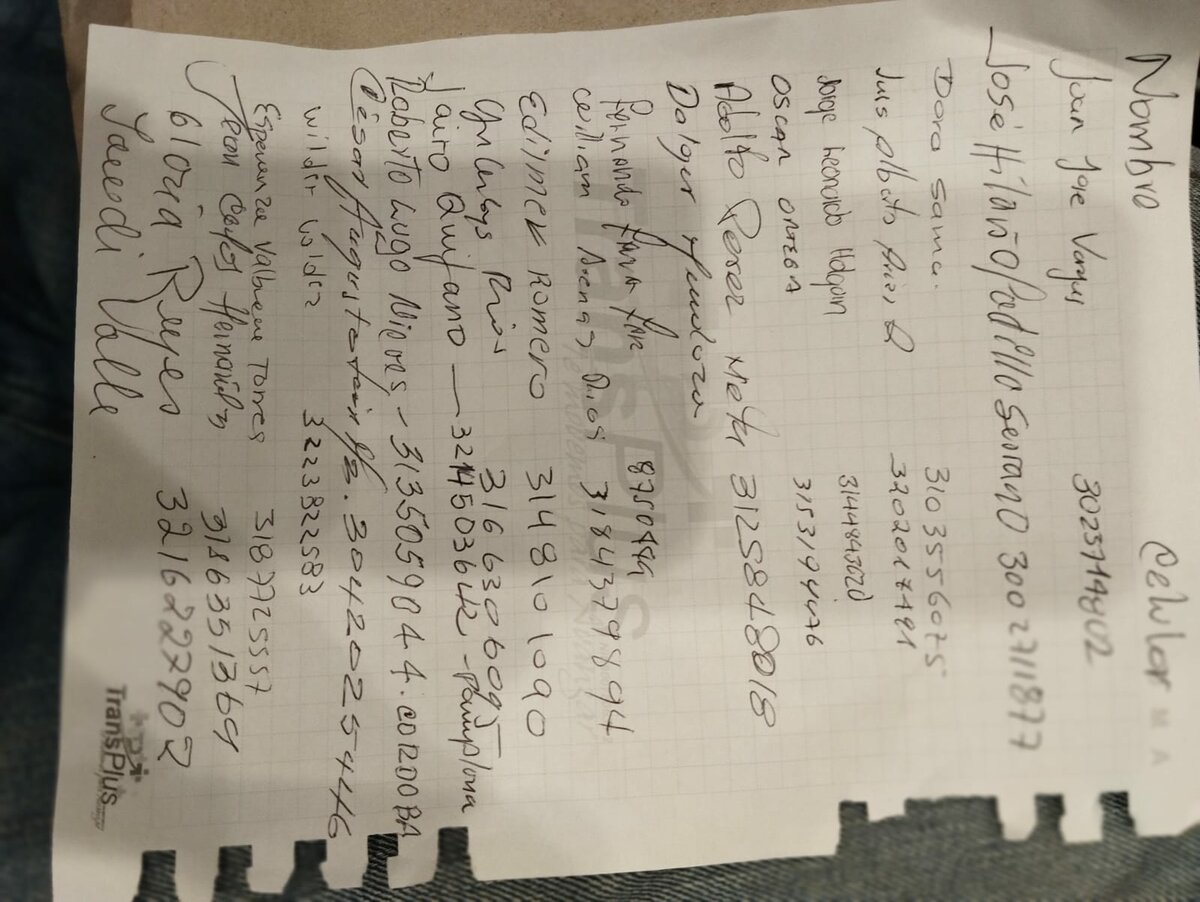 Nombre Celular
Juan Jose Vargas
José Hilario Padillo Serrano 3002711877
Dora Sama. 3103556075
Luis Alberto 3202017491
Jorge Leonardo Holguin
OSCAR ORTEGA 3153194476
Adolfo Perez Meta 3125848018
Dalger Mendoza
Fernando
William Arenas Rios 3184379894
Edimer Romero 3148101090
Rios 3166306095
Jairo Quijano — 3214503642 - Pamplona
Roberto Lugo Nieves - 3135059044. CORDOBA
César Augusto 3042025446
wilder valdez 3223822583
Esperanza Valbuena Torres 3187725557
Jeon Carlos Hernández 3186351369
Gloria Reyes 3216227902
Yaneedi Valle
TransPlus